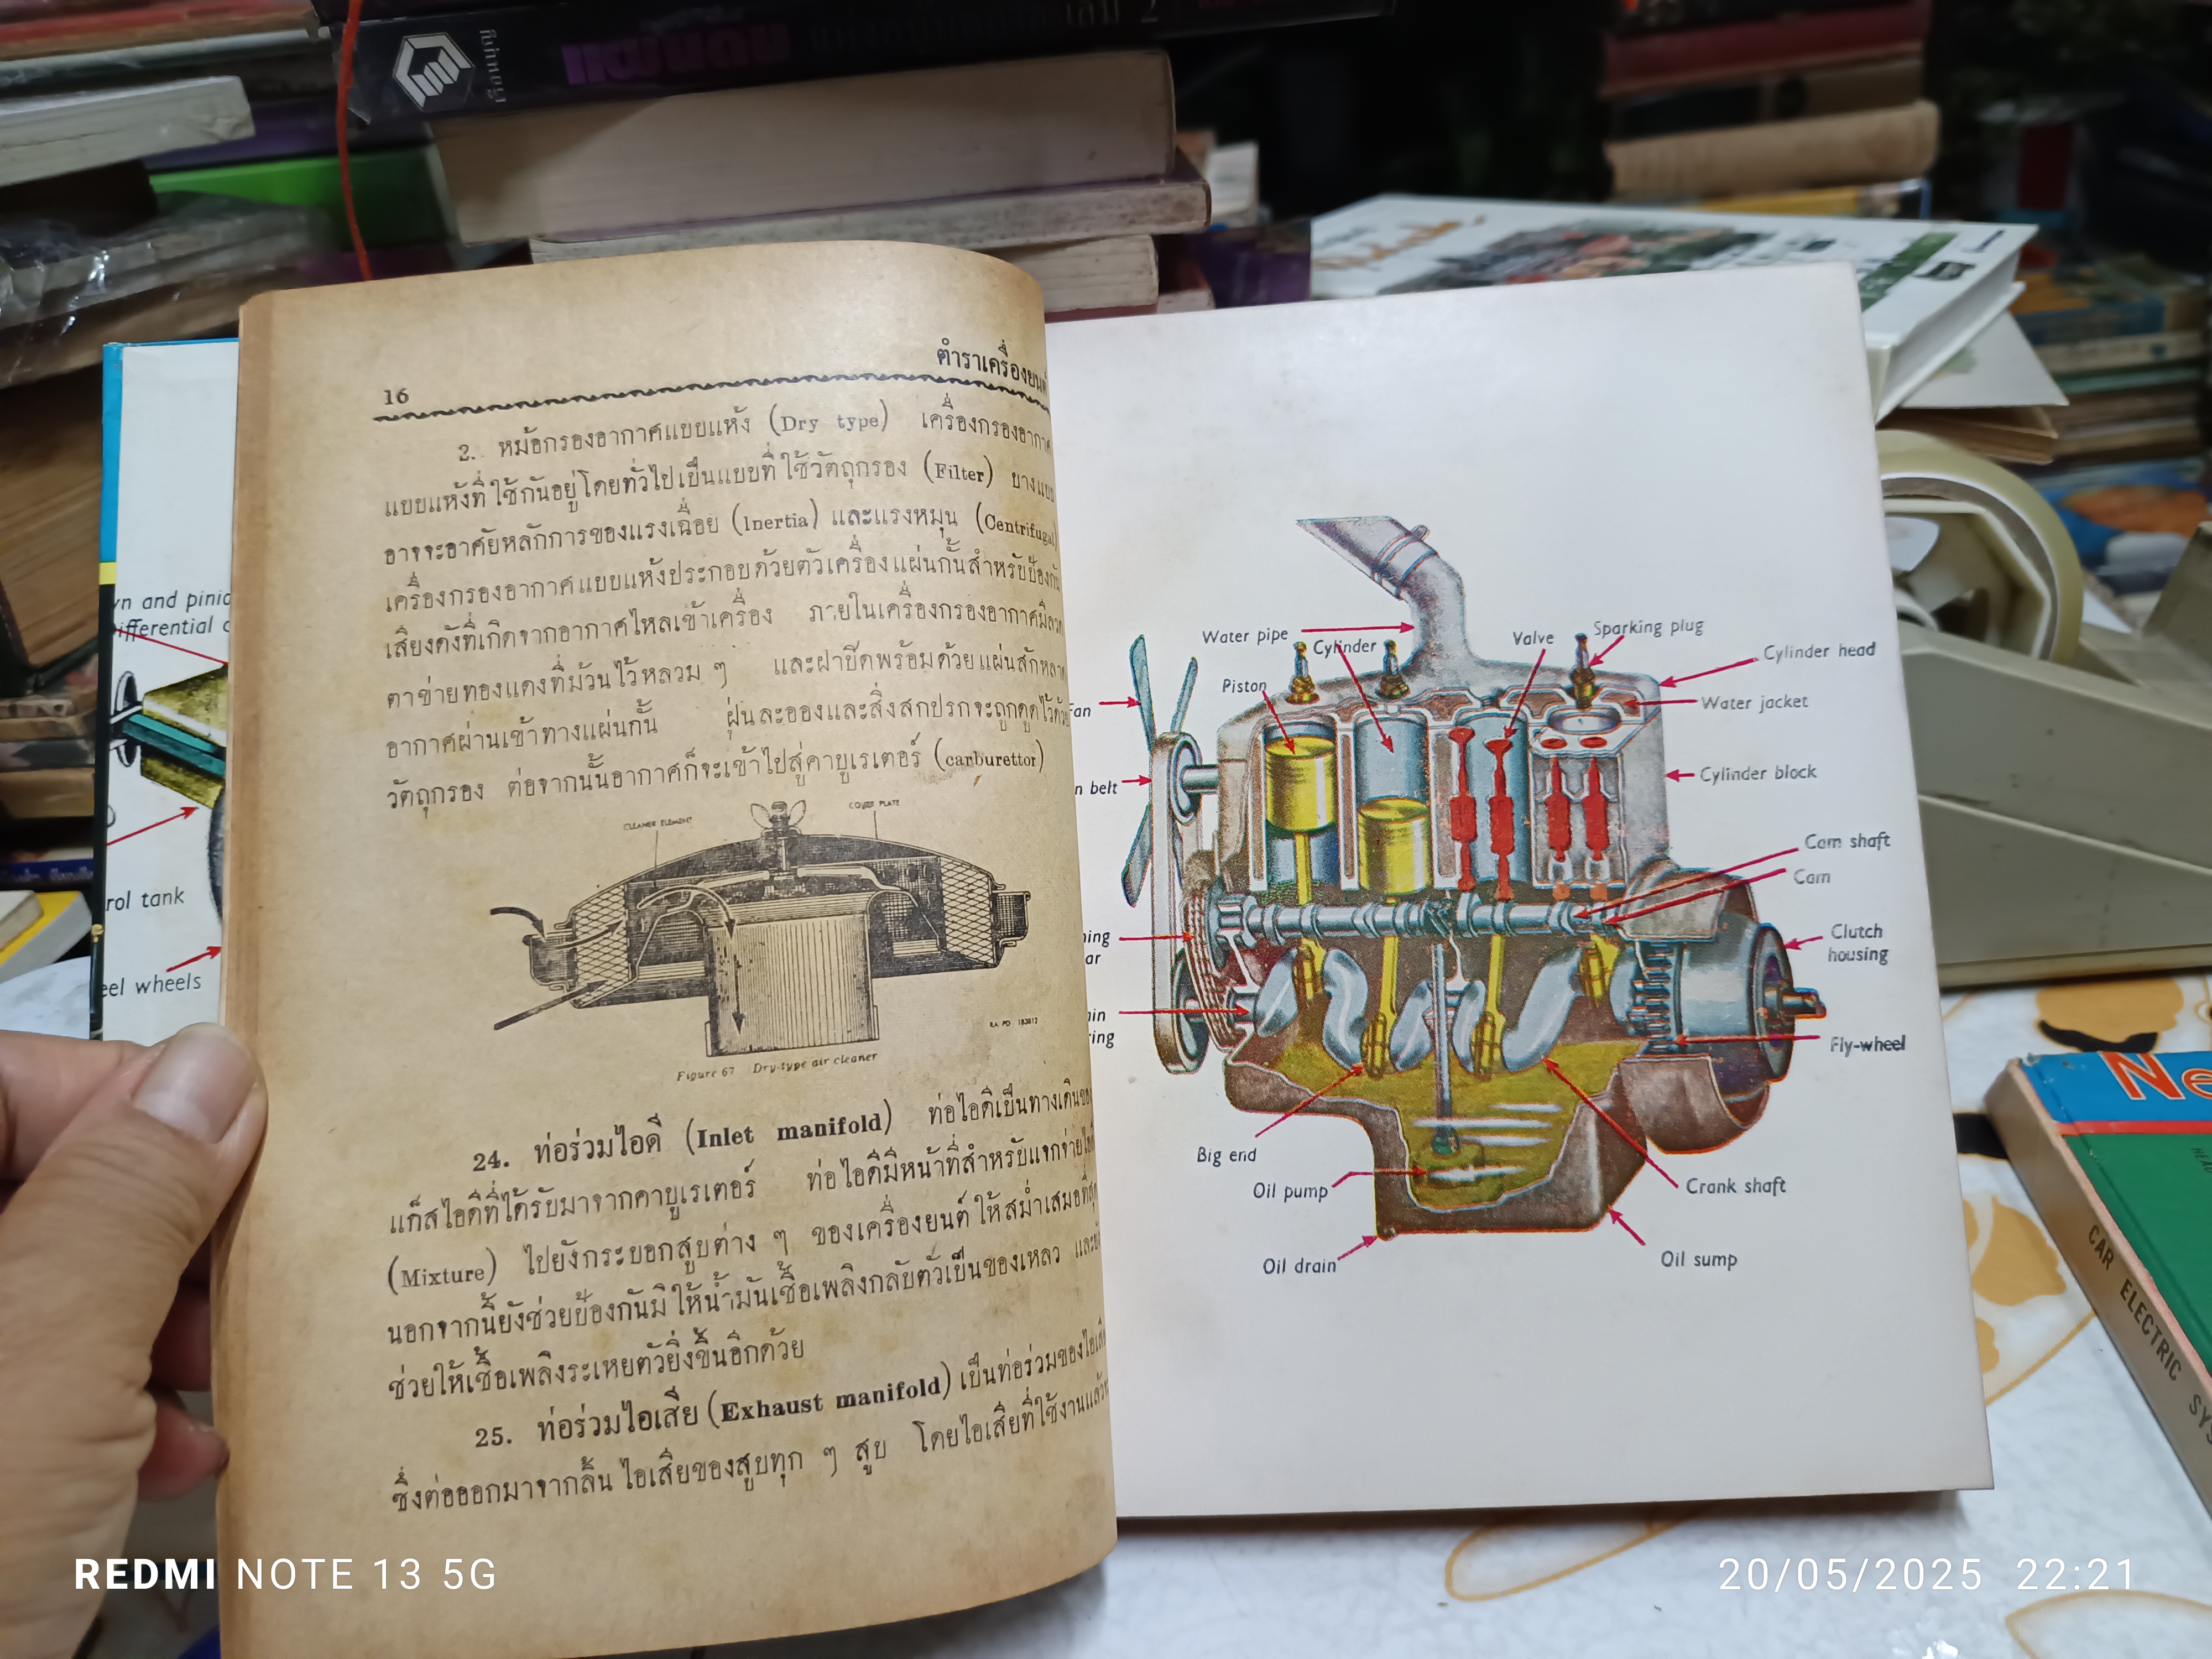 16
ตำราเครื่องยนต์
2. หม้อกรองอากาศแบบแห้ง (Dry type) เครื่องกรองอากาศ
แบบแห้งที่ใช้กันอยู่โดยทั่วไปเป็นแบบที่ใช้วัตถุกรอง (Filter) บางแบบ
อาจจะอาศัยหลักการของแรงเฉื่อย (Inertia) และแรงหมุน (Centrifugal)
เครื่องกรองอากาศแบบแห้งประกอบด้วยตัวเครื่องแผ่นกั้นสำหรับป้องกัน
เสียงดังที่เกิดจากอากาศไหลเข้าเครื่อง ภายในเครื่องกรองอากาศมีลวด
ตาข่ายทองแดงที่ม้วนไว้หลวม ๆ และฝาปิดพร้อมด้วยแผ่นสักหลาด
อากาศผ่านเข้าทางแผ่นกั้น ฝุ่นละอองและสิ่งสกปรกจะถูกดูดไว้ด้วย
วัตถุกรอง ต่อจากนั้นอากาศก็จะเข้าไปสู่คาบูเรเตอร์ (carburettor)
CLEANER ELEMENT
COVER PLATE
RA PD 183812
Figure 67 Dry-type air cleaner
24. ท่อร่วมไอดี (Inlet manifold) ท่อไอดีเป็นทางเดินของ
แก๊สไอดีที่ได้รับมาจากคาบูเรเตอร์ ท่อไอดีมีหน้าที่สำหรับแจกจ่ายไอดี
(Mixture) ไปยังกระบอกสูบต่าง ๆ ของเครื่องยนต์ให้สม่ำเสมอที่สุด
นอกจากนี้ยังช่วยป้องกันมิให้น้ำมันเชื้อเพลิงกลับตัวเป็นของเหลว และ
ช่วยให้เชื้อเพลิงระเหยตัวยิ่งขึ้นอีกด้วย
25. ท่อร่วมไอเสีย (Exhaust manifold) เป็นท่อร่วมของไอเสีย
ซึ่งต่อออกมาจากลิ้นไอเสียของสูบทุก ๆ สูบ โดยไอเสียที่ใช้งานแล้ว
Water pipe
Cylinder
Valve
Sparking plug
Cylinder head
Piston
Water jacket
Fan
n belt
Cylinder block
Cam shaft
Cam
ning
ar
Clutch
housing
ain
ring
Fly-wheel
Big end
Oil pump
Crank shaft
Oil drain
Oil sump
wn and pinio
ifferential c
rol tank
eel wheels
Ne
CAR ELECTRIC SYS
REDMI NOTE 13 5G
20/05/2025 22:21